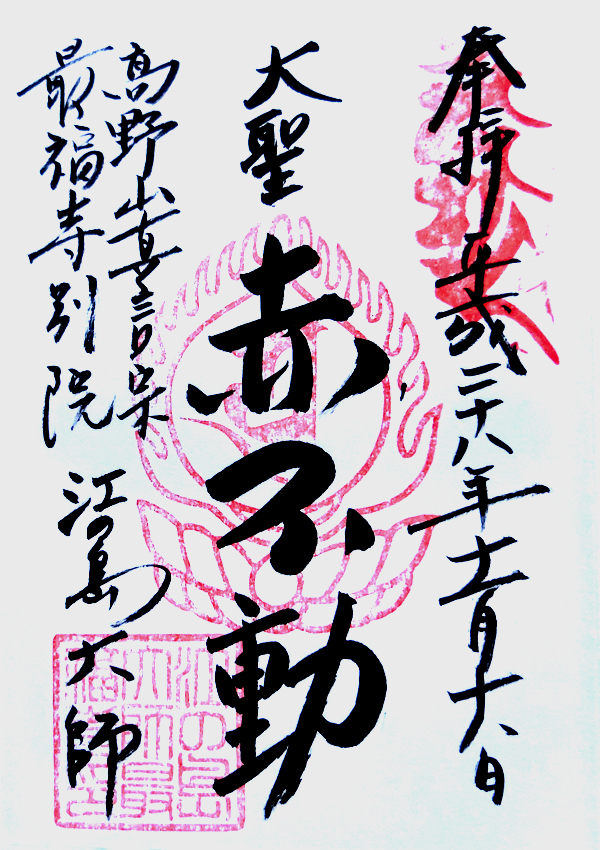 奉拝 平成二十八年十二月十八日
大聖
赤不動
高野山真言宗
最福寺別院
江の島大師
江の島
大師最